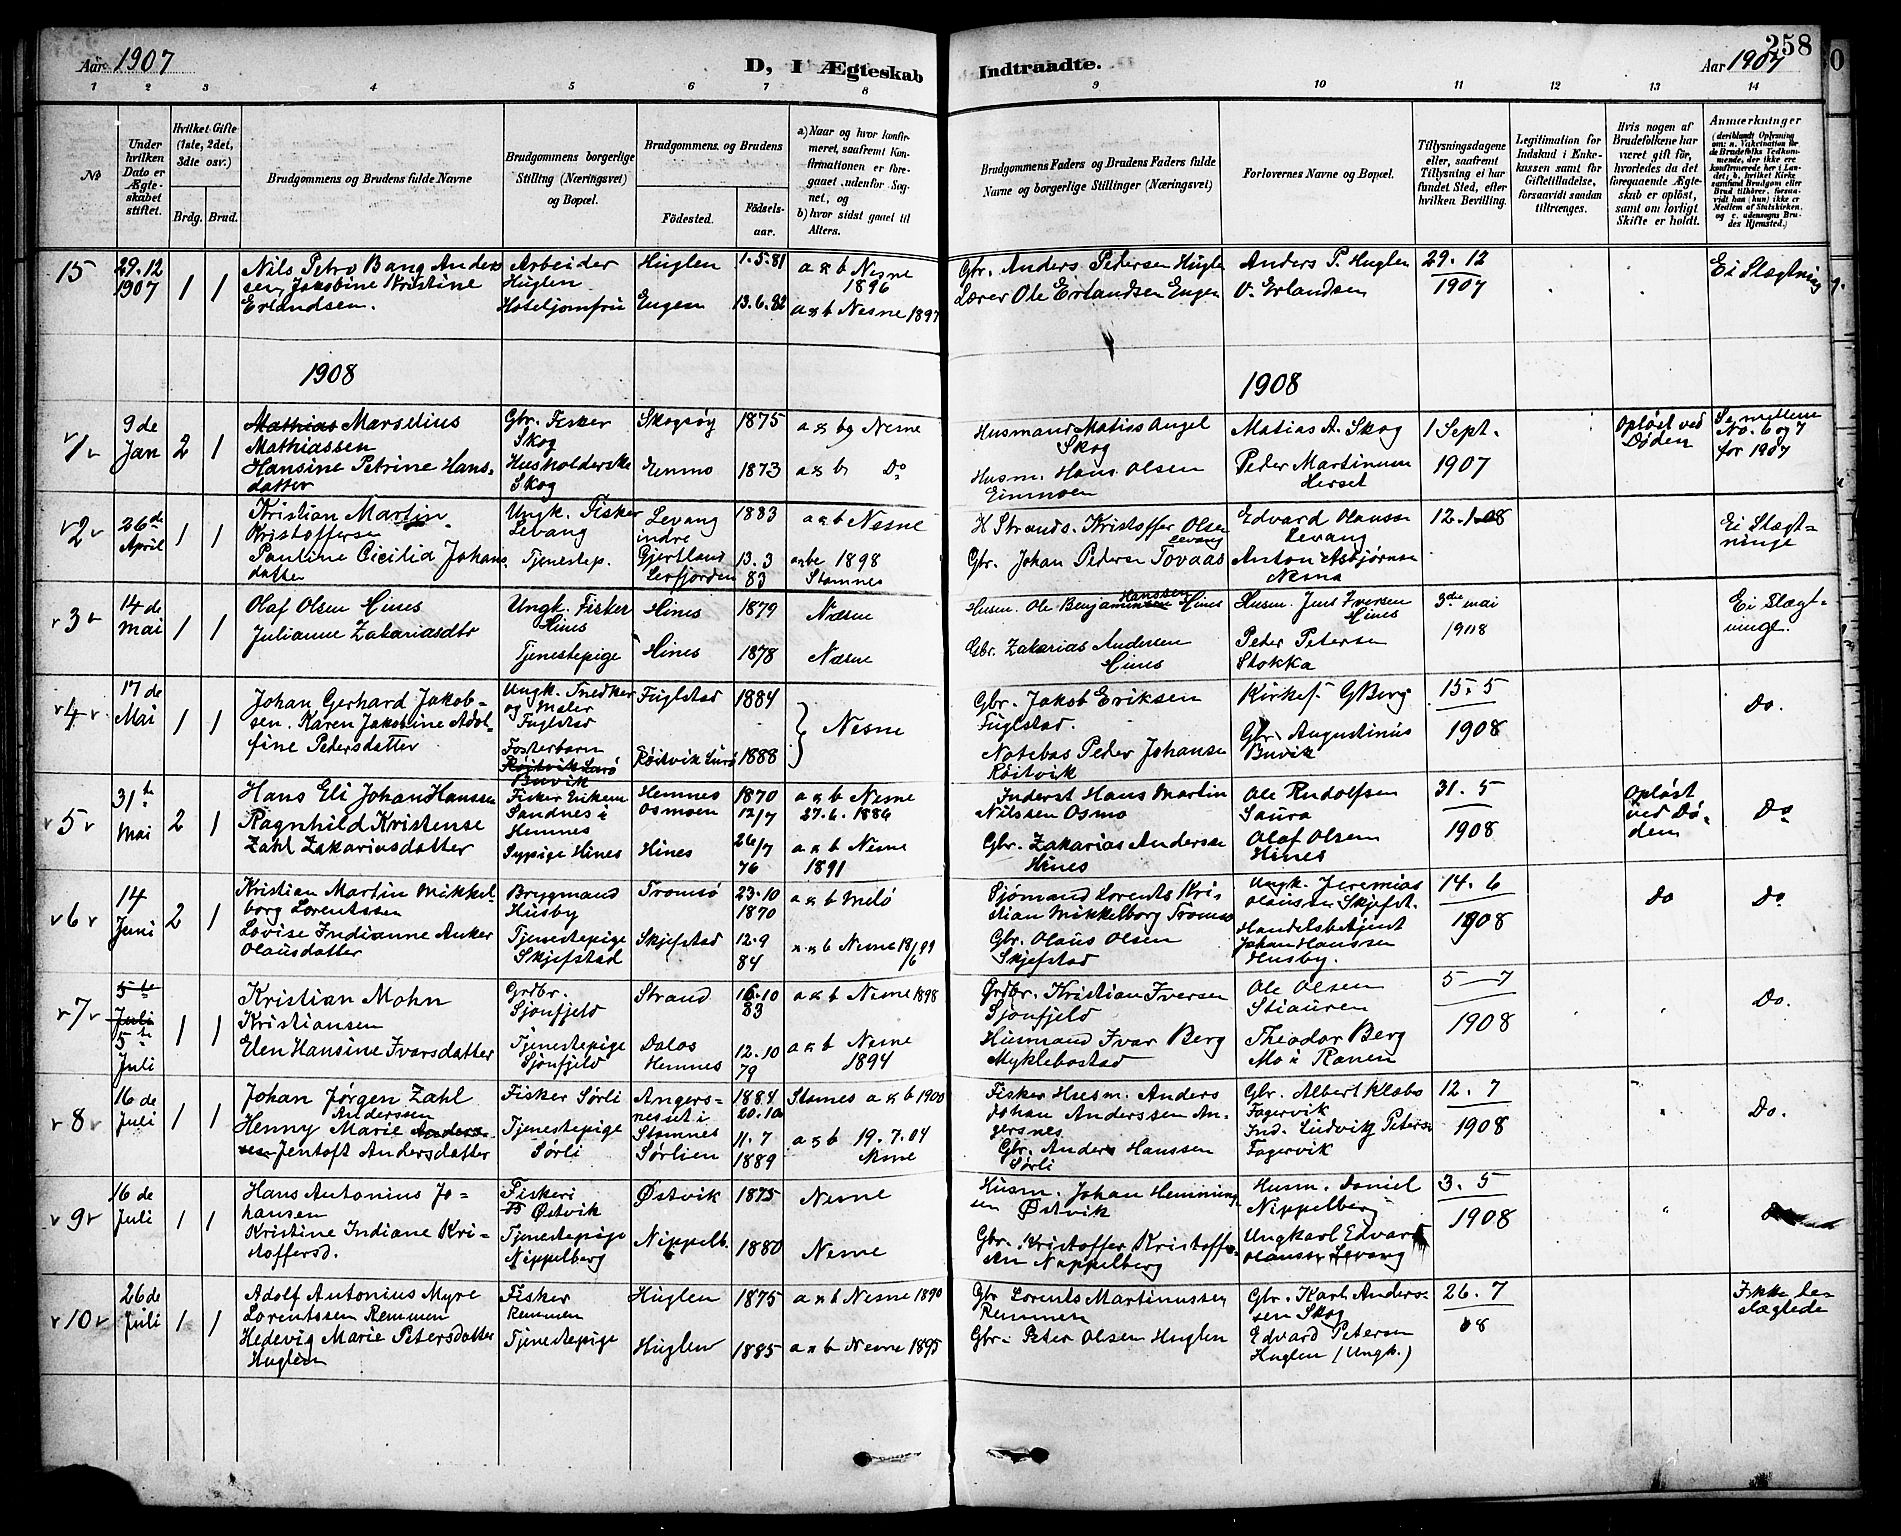 258
Aar 1907
D, I Ægteskab
Indtraadte.
Aar 1907
1 2 3 4 5 6 7 8 9 10 11 12 13 14
No
Under hvilken Dato er Ægteskabet stiftet.
Hvilket Gifte (1ste, 2det, 3die osv.)
Brdg. Brud.
Brudgommens og Brudens fulde Navne
Brudgommens borgerlige Stilling (Næringsvei) og Bopæl.
Brudgommens og Brudens
Fødested.
Fødselsaar.
a) Naar og hvor konfirmeret, saafremt Konfirmationen er foregaaet udenfor Sognet, og
b) hvor sidst gaaet til Alters.
Brudgommens Faders og Brudens Faders fulde Navne og borgerlige Stillinger (Næringsvei)
Forlovernes Navne og Bopæl.
Tillysningsdagene eller, saafremt Tillysning ei har fundet Sted, efter hvilken Bevilling.
Legitimation for Indskud i Enkekassen samt for Giftetilladelse, forsaavidt saadan tiltrænges.
Hvis nogen af Brudefolkene har været gift før, hvorledes da det foregaaende Ægteskab er opløst, samt om lovligt Skifte er holdt.
Anmærkninger
(deriblandt Oplysning om: a. Vakcination for de Brudefolks Vedkommende, der ikke ere konfirmerede her i Landet; b. hvilket Kirkesamfund Brudgom eller Brud tilhører, forsaavidt han (hun) ikke er Medlem af Statskirken, og c. udensogns Brudes Hjemsted.)
15 29.12 1907 1 1
Nils Petro Bang Andersen, Jakobine Kristine Erlandsen.
Arbeider Huglen
Hoteljomfru
Huglen 1.5.81 a & b Nesne 1896
Engen 13.6.82 a & b Nesne 1897
Gbr. Anders Pedersen Hugle
Lærer Ole Erlandsen Engen
Anders P. Huglen
O. Erlandsen
29.12 1907
Ei Slægtning
1908
1908
1 9de Jan 2 1
Mathias Marselius Mathiassen
Hansine Petrine Hansdatter
Gbr. Fisker Skog
Husholderske Skog
Skogsøy 1875 a & b Nesne
1873 a & b Do
Husmand Matias Angel Skog
Husm. Hans Olsen
Matias A. Skog
Peder Martinum Herset
1 Sept. 1907
Opløst ved Døden
Se mellem No. 6 og 7 for 1907
2 26de April 1 1
Kristian Martin Kristoffersen
Pauline Cicilia Johansdatter
Ungk. Fisker Levang
Tjenestep.
Levang indre 1883 a & b Nesne
Gjertland Leirfjorden 13.3 83 1898 Stamnes
H Strands. Kristoffer Olsen Levang
Gbr. Johan Pedersen Tovaas
Edvard Olaussen Levang
Anton Asbjørnsen Nesna
12.1.08
Ei Slægtninge
3 14de mai 1 1
Olaf Olsen Hines
Julianne Zakariasdtr
Ungk. Fisker Hines
Tjenestepige
Hines 1879 Næsne
Hines 1878 Næsne
Husm. Ole Benjaminsen Hanssen Hines
Gbr. Zakarias Andersen Hines
Husm. Jens Iversen Hines
Peder Petersen Stokka
3de mai 1908
Ei Slægtninge.
4 17de Mai 1 1
Johan Gerhard Jakobsen. Karen Jakobine Adolfine Pedersdatter
Ungk. Snedker og Maler Fuglstad
Fosterbarn Røitvik Lurø Buvik
Fuglstad 1884
Røitvik Lurø 1888
Nesne
Gbr. Jakob Eriksen Fuglstad.
Notebas Peder Johansen Røitvik
Kirkes. G Berg
Gbr. Augustinus Buvik
15.5 1908
Do.
5 31te Mai 2 1
Hans Eli Johan Hanssen
Ragnhild Kristense Zahl Zakariasdatter
Fisker Enkem Sandnes i Hemnes
Sypige Hines
Hemnes Osmoen 1870 12/7 a & b Nesne 27.6.1886
Hines 26/7 76 a & b Nesne 1891
Inderst Hans Martin Nilssen Osmo
Gbr. Zakarias Anderssen Hines
Ole Rudolfsen Saura
Olaf Olsen Hines
31.5 1908
Opløst ved Døden
Do
6 14 Juni 2 1
Kristian Martin Mikkelborg Lorentssen
Lovise Indianne Anker Olausdatter
Bryggmand Husby
Tjenestepige Skjefstad
Tromsø 23.10 1870 a & b Melø
Skjefstad 12.9 84 a & b Nesne 18/6 99
Sjømand Lorents Kristian Mikkelborg Tromsø
Gbr. Olaus Olsen Skjefstad
Ungk. Jeremias Olaussen Skjefst.
Handelsbetjent Johan Hanssen Husby.
14.6 1908
Do
Do.
7 5te Juli 5te Juli 1 1
Kristian Mohn Kristiansen
Elen Hansine Ivarsdatter
Grdbr. Sjonfjeld
Tjenestepige Sjonfjeld
Strand 16.10 83 a & b Nesne 1898
Dalos Hemnes 12.10 79 a & b Nesne 1894
Grdbr. Kristian Iversen Sjonfjeld
Husmand Ivar Berg Myklebostad
Ole Olsen Stiauren
Theodor Berg Mo i Ranen
5–7 1908
Do.
8 16de Juli 1 1
Johan Jørgen Zahl Anderssen
Henny Marie Anderssen Jentoft Andersdatter
Fisker Sørli
Tjenestepige Sørli
Angersneset i Stamnes 1884 20.10 Stamnes a & b 1900
Sørlien 11.7 1889 a & b 19.7.04 Nesne
Fisker Husm. Anders Johan Anderssen Angersnes
Gbr. Anders Hanssen Sørli
Gbr. Albert Klæbo Fagervik
Ind. Ludvik Petersen Fagervik
12.7 1908
Do.
9 16de Juli 1 1
Hans Antonius Johansen
Kristine Indiane Kristoffersd.
Fiskeri Østvik
Tjenestepige Nippelberg
Østvik 1875 Nesne
Nippelb. 1880 Nesne
Husm. Johan Hemmingsen Østvik
Gbr. Kristoffer Kristoffersen Nippelberg
Husm. Daniel Nippelberg
Ungkarl Edvard Olaussen Levang
3.5 1908
10 26de Juli 1 1
Adolf Antonius Myre Lorentssen Remmen
Hedevig Marie Petersdatter Huglen
Fisker Remmen
Tjenestepige
Huglen 1875 a & b Nesne 1890
Huglen 1885 a & b Nesne 1895
Gbr Lorents Martinussen Remmen
Gbr. Peter Olsen Huglen
Gbr. Karl Anderssen Skog
Edvard Petersen Huglen (Ungk.)
26.7 08
Ikke beslægtede